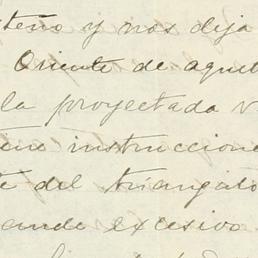 teño y nos dija
Oriente de aquel
la proyectada v
instruccione
del triangulo
ande excesivo